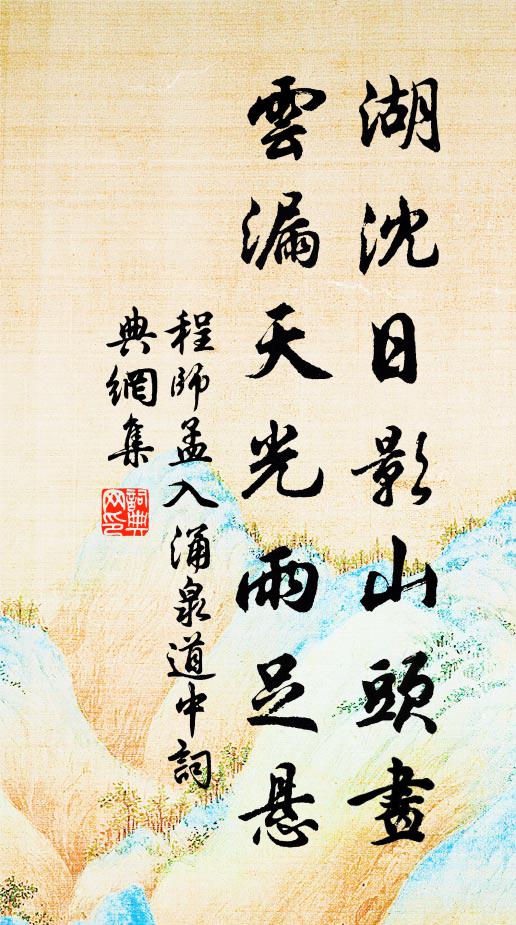 湖沈日影山頭晝
雲漏天光雨足懸
程師孟入涌泉道中詞
典網集
詞典網印